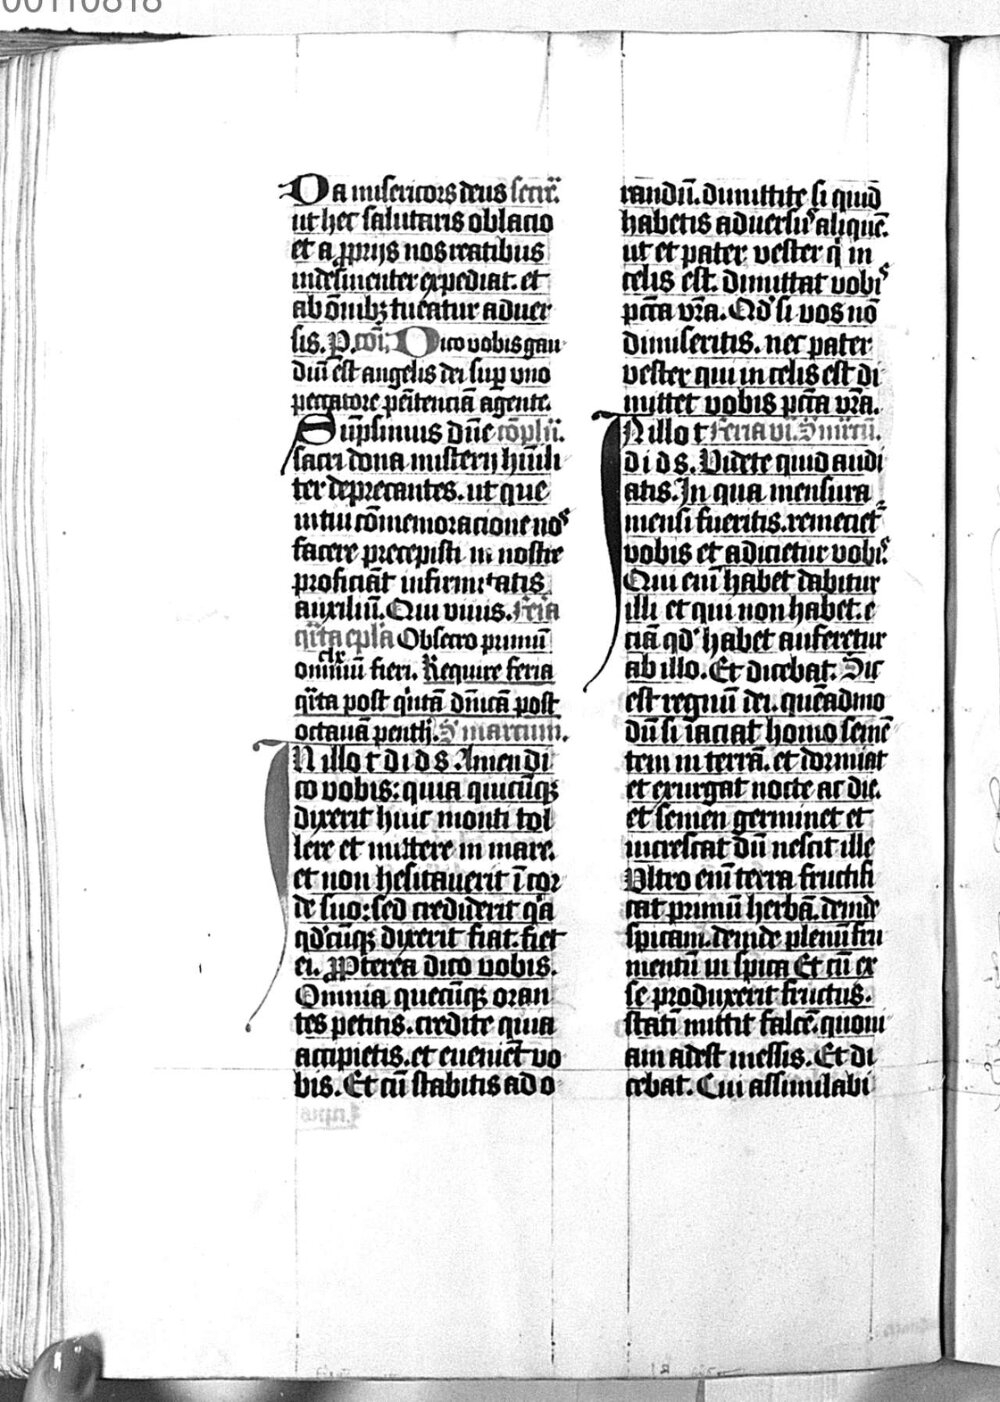 00110818
Da misericors deus secre͞.
ut hec salutaris oblacio
et a ꝓprijs nos reatibus
indesinenter expediat. et
ab o͞mibꝫ tueatur aduer
sis. P. co͞i; Dico vobis gau
diu͞ est angelis dei sup̱ vno
peccatore pe͞itencia͞ agente.
Su͞psimus d͞ne co͞pl͞ii.
sacri dona misterij hu͞ili
ter deprecantes. ut que
in tui co͞memoracione nos
facere precepisti in nostre
proficia͞t infirmitatis
auxiliu͞. Qui viuis. Feria
q͞rta ep͞la Obsecro primu͞
omniu͞ fieri. Require feria
q͞rta post qui͞ta͞ d͞nica͞ post
octaua͞ penth͞. S͞ marcum.
IN illo t d i d s. Amen di
co vobis: quia quicu͞qꝫ
dixerit huic monti tol
lere et mittere in mare.
et non hesitauerit i͞ cor
de suo: sed crediderit q͞a
qd͞cu͞qꝫ dixerit fiat. fiet
ei. Ꝓpterea dico vobis.
Omnia quecu͞qꝫ oran
tes petitis. credite quia
accipietis. et eueniet vo
bis. Et cu͞ stabitis ad o
randu͞. dimittite si quid
habetis aduersus alique͞.
ut et pater vester q͞ in
celis est. dimittat vobis
pc͞ta vr͞a. Qd͞ si vos no͞
dimiseritis. nec pater
vester qui in celis est di
mittet vobis pc͞ta vr͞a.
IN illo t Feria vi. S͞ m͞rcu͞.
d i d s. Videte quid audi
atis. In qua mensura
mensi fueritis. remecietr
vobis et adicietur vobis.
Qui eni͞ habet dabitur
illi et qui non habet: e
cia͞ qd͞ habet auferetur
ab illo. Et dicebat. Sic
est regnu͞ dei. que͞admo
du͞ si iaciat homo seme͞
tem in terra͞. et dormiat
et exurgat nocte ac die.
et semen germinet et
increscat du͞ nescit ille
Vltro eni͞ terra fructifi
cat primu͞ herba͞. deinde
spicam. deinde plenu͞ fru
mentu͞ in spica Et cu͞ ex
se produxerit fructus.
stati͞ mittit falce͞. quoni
am adest messis. Et di
cebat. Cui assimilabi